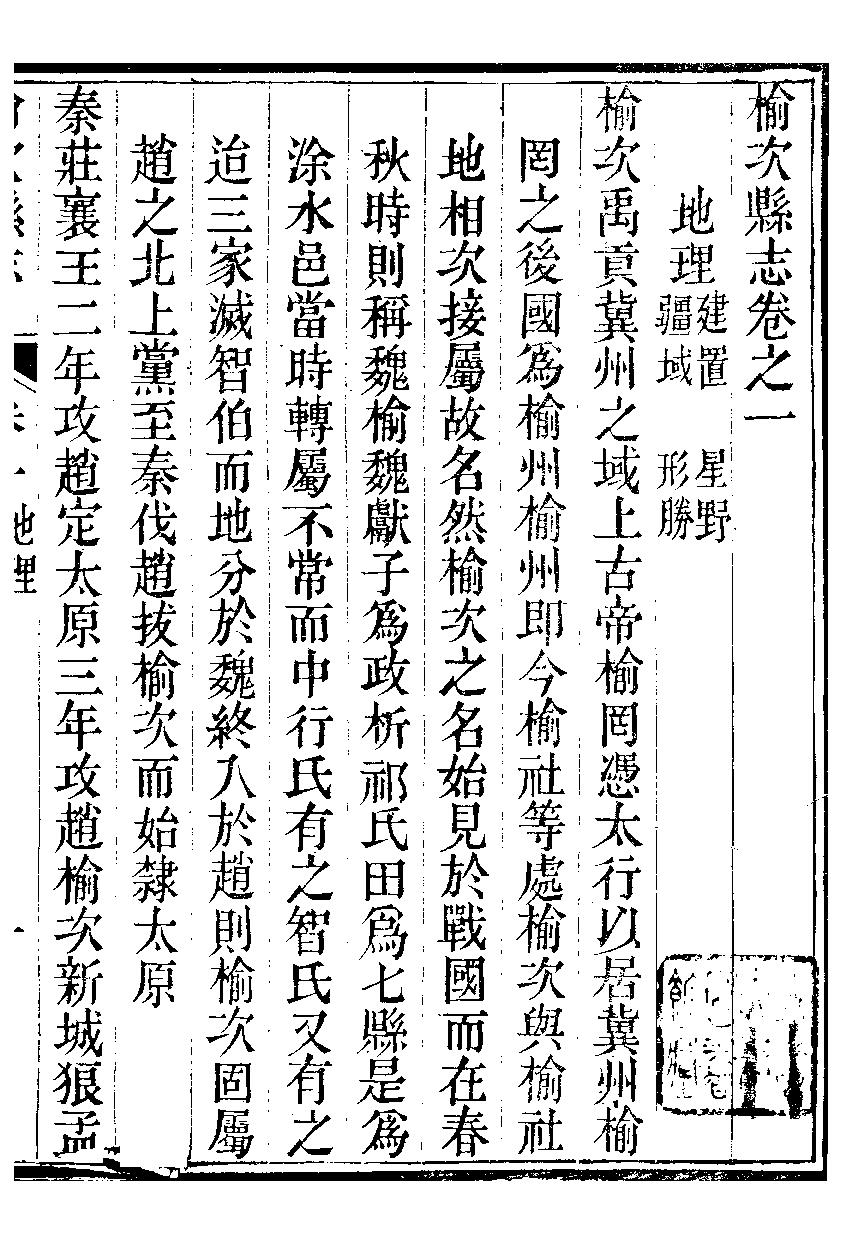 榆次縣志卷之一
地理 建置 星野
疆域 形勝
榆次禹貢冀州之域上古帝榆罔憑太行以居冀州榆
罔之後國爲榆州榆州即今榆社等處榆次與榆社
地相次接屬故名然榆次之名始見於戰國而在春
秋時則稱魏榆魏獻子爲政析祁氏田爲七縣是爲
涂水邑當時轉屬不常而中行氏有之智氏又有之
迨三家滅智伯而地分於魏終入於趙則榆次固屬
趙之北上黨至秦伐趙拔榆次而始隸太原
秦莊襄王二年攻趙定太原三年攻趙榆次新城狼孟
地理